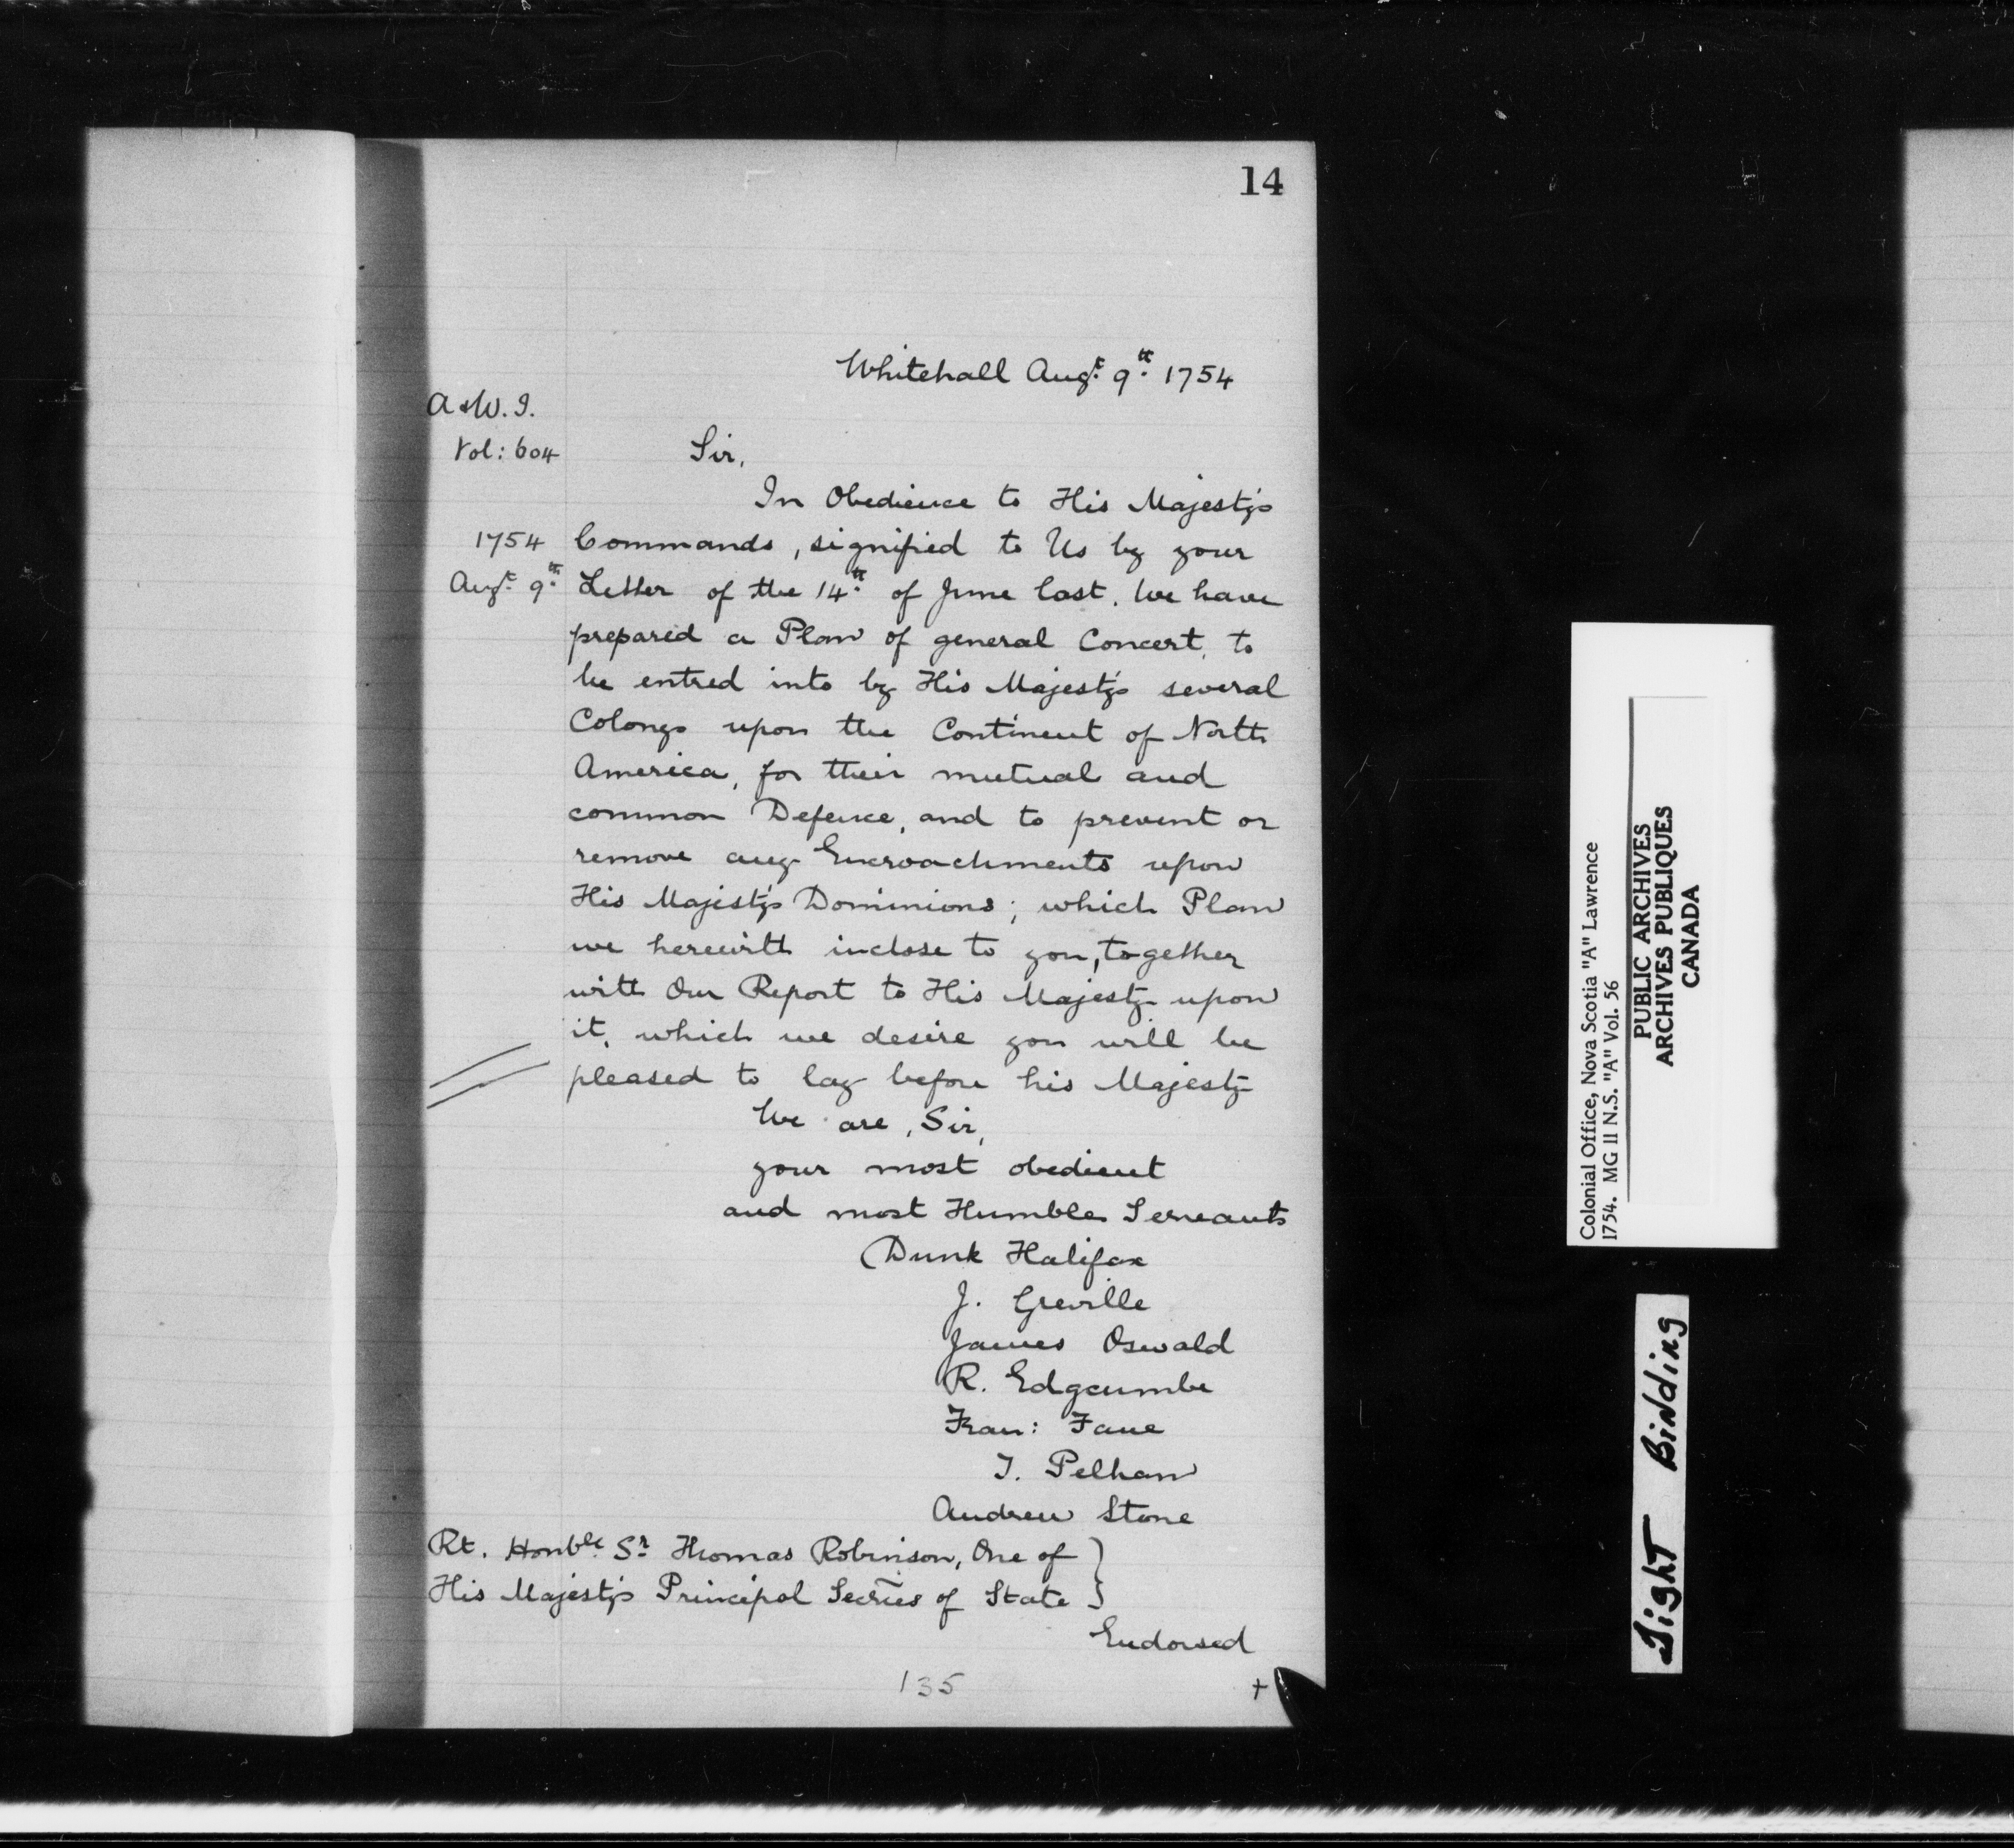 14
Whitehall Augt. 9th. 1754
A & W. I.
Vol: 604
Sir,
In Obedience to His Majesty's
1754
Commands, signified to Us by your
Augt. 9th.
Letter of the 14th. of June last. We have
prepared a Plan of general Concert, to
be entred into by His Majesty's several
Colonys upon the Continent of North
America, for their mutual and
common Defence, and to prevent or
remove any Encroachments upon
His Majesty's Dominions; which Plan
we herewith inclose to you, together
with Our Report to His Majesty upon
it, which we desire you will be
pleased to lay before his Majesty
We are, Sir,
your most obedient
and most Humble Servants
Dunk Halifax
J. Grenville
James Oswald
R. Edgcumbe
Fran: Fane
T. Pelham
Andrew Stone
Rt. Honble. Sr. Thomas Robinson, One of }
His Majesty's Principal Secries of State }
Endorsed
135
+
Colonial Office, Nova Scotia "A" Lawrence
1754. MG 11 N.S. "A" Vol. 56
PUBLIC ARCHIVES
ARCHIVES PUBLIQUES
CANADA
Tight Binding